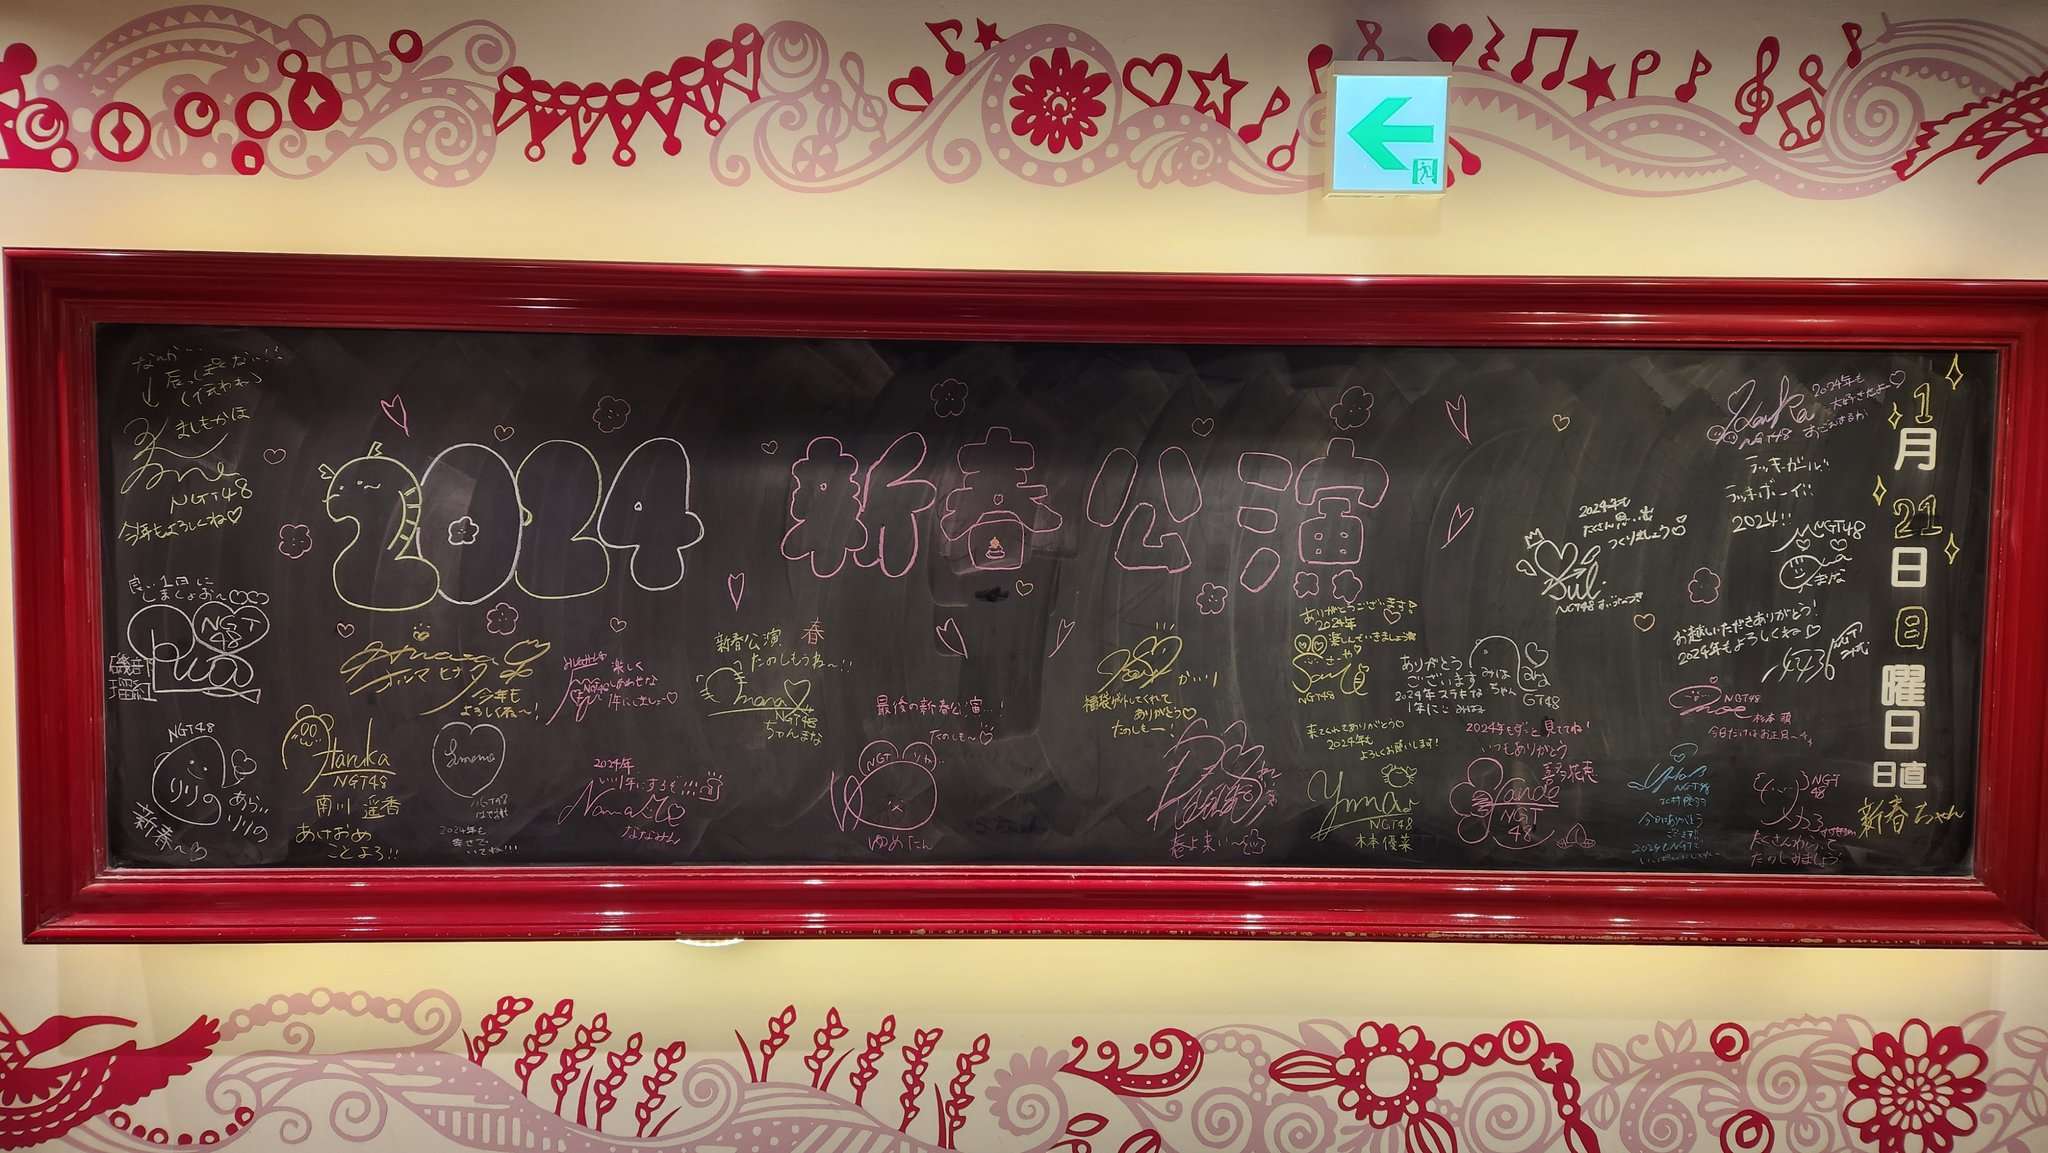 2024 新春公演
1月21日日曜日
日直
新春ちゃん
なんか…
ましもかほ
NGT48
今年もよろしくね♡
良い1日に
しましょお〜♡♡
NGT
48
磯部
瑠紅
NGT48
りりの
あら!!
りりの
新春〜♡
今年も
よろしくね〜!
Haruka
NGT48
南川 遥香
あけおめ
ことよろ!!
NGT48
2024年も
楽しく
NGT48
しあわせな
1年にしましょ〜♡
2024年、
いい年にするぞ!!!
ななみん
新春公演、春
たのしもうね〜!!
NGT48
ちゃんまな
最後の新春公演…!
たのしも〜
NGT
ゆめたん
かい!
福袋ゲットしてくれて
ありがとう♡
たのしも〜!
春よ来い〜
ありがとうございます!
2024年
楽しんでいきましょう
さーや
NGT48
来てくれてありがとう♡
2024年も
よろしくお願いします!
Yuna
NGT48
木本優菜
ありがとう
ございます
みはちゃん
2024年ステキな
1年に
NGT48
2024年もずっと見ててね!
いつもありがとう
NGT
48
2024年も
たくさん思い出
つくりましょう♡
NGT48
2024年も
大好きだよ〜♡
NGT48
ラッキーガール!!
ラッキーボーイ!!
2024!!
NGT48
まな
お越しいただきありがとう!
2024年もよろしくね♡
NGT48
杉本 萌
今日だけはお正月〜
NGT48
北村優羽
今日はありがとう
ございます!!
2024もNGTで
NGT
48
たくさんわらって
たのしみましょう